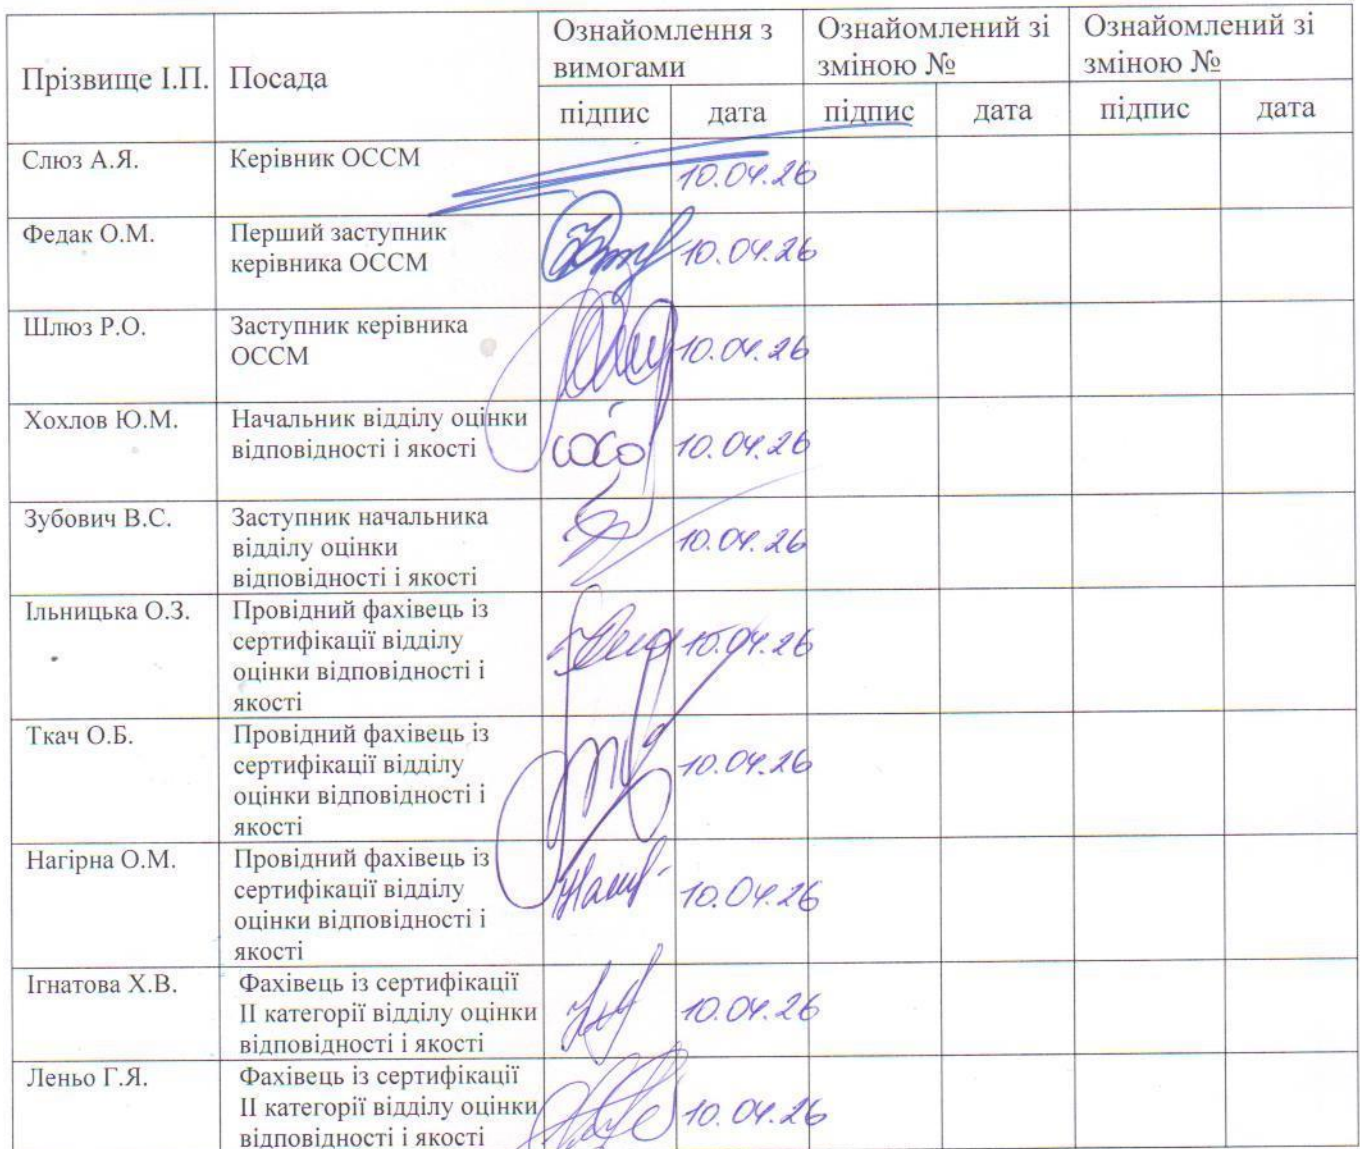 Прізвище І.П. Посада Ознайомлення з вимогами Ознайомлений зі зміною № Ознайомлений зі зміною №
підпис дата підпис дата підпис дата
Слюз А.Я. Керівник ОССМ 10.04.26
Федак О.М. Перший заступник
керівника ОССМ 10.04.26
Шлюз Р.О. Заступник керівника
ОССМ 10.04.26
Хохлов Ю.М. Начальник відділу оцінки
відповідності і якості 10.04.26
Зубович В.С. Заступник начальника
відділу оцінки 10.04.26
відповідності і якості
Ільницька О.З. Провідний фахівець із
сертифікації відділу 10.04.26
оцінки відповідності і
якості
Ткач О.Б. Провідний фахівець із
сертифікації відділу 10.04.26
оцінки відповідності і
якості
Нагірна О.М. Провідний фахівець із
сертифікації відділу 10.04.26
оцінки відповідності і
якості
Ігнатова Х.В. Фахівець із сертифікації
ІІ категорії відділу оцінки 10.04.26
відповідності і якості
Леньо Г.Я. Фахівець із сертифікації
ІІ категорії відділу оцінки 10.04.26
відповідності і якості